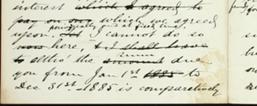 interest which I agreed to
pay on our which we agreed
upon. but I cannot do so
now here, & it shall have
to settle the amount due
you from Jan 1st 1885 to
Dec 31st 1885 is comparatively